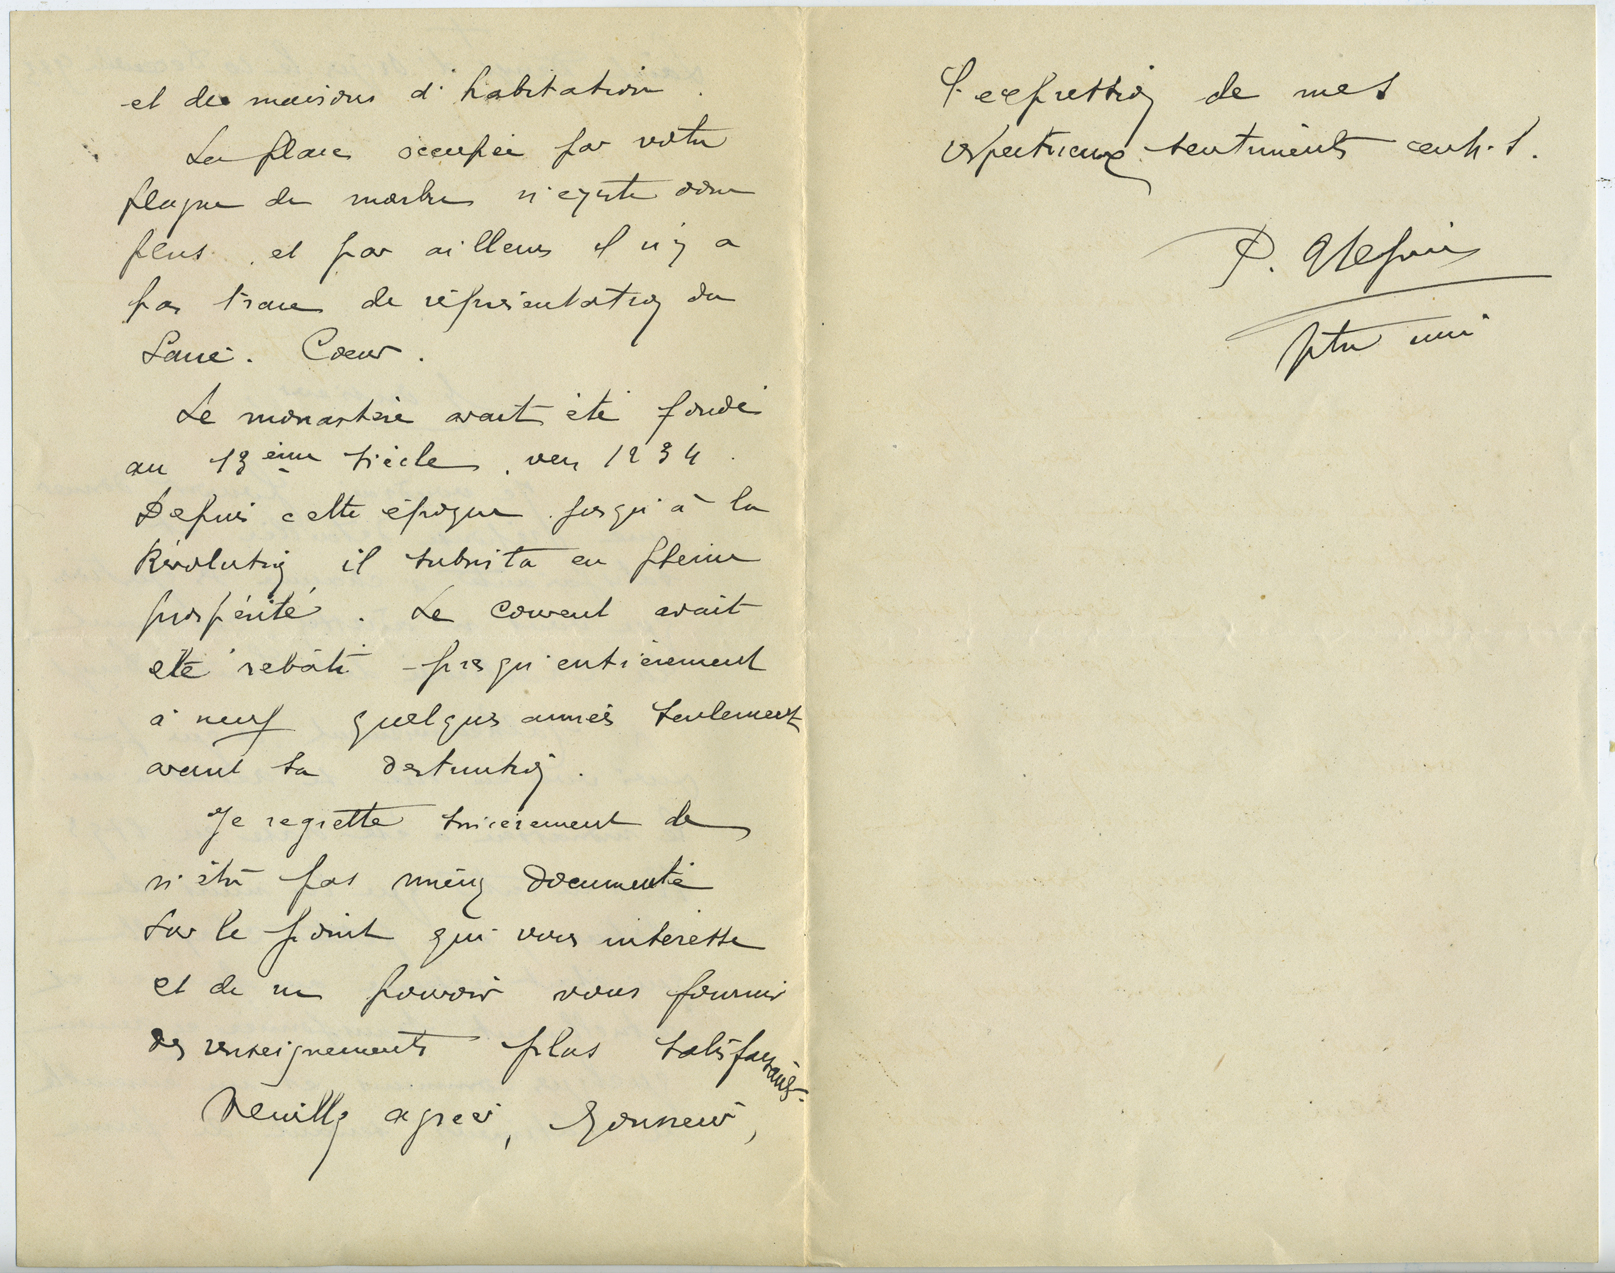 et des maisons d'habitation.
La place occupée par votre
plaque de marbre n'existe donc
plus, et par ailleurs il n'y a
pas trace de représentation du
Sacré-Coeur.
Le monastère avait été fondé
au 13ème siècle, vers 1234.
Depuis cette époque jusqu'à la
Révolution il subsista en pleine
prospérité. Le couvent avait
été rebâti presqu'entièrement
à neuf quelques années seulement
avant sa destruction.
Je regrette sincèrement de
n'être pas mieux documenté
sur le point qui vous intéresse
et de ne pouvoir vous fournir
des renseignements plus satisfaisants.
Veuillez agréer, Monsieur,
l'expression de mes
respectueux sentiments en N. S.
P.
ptre